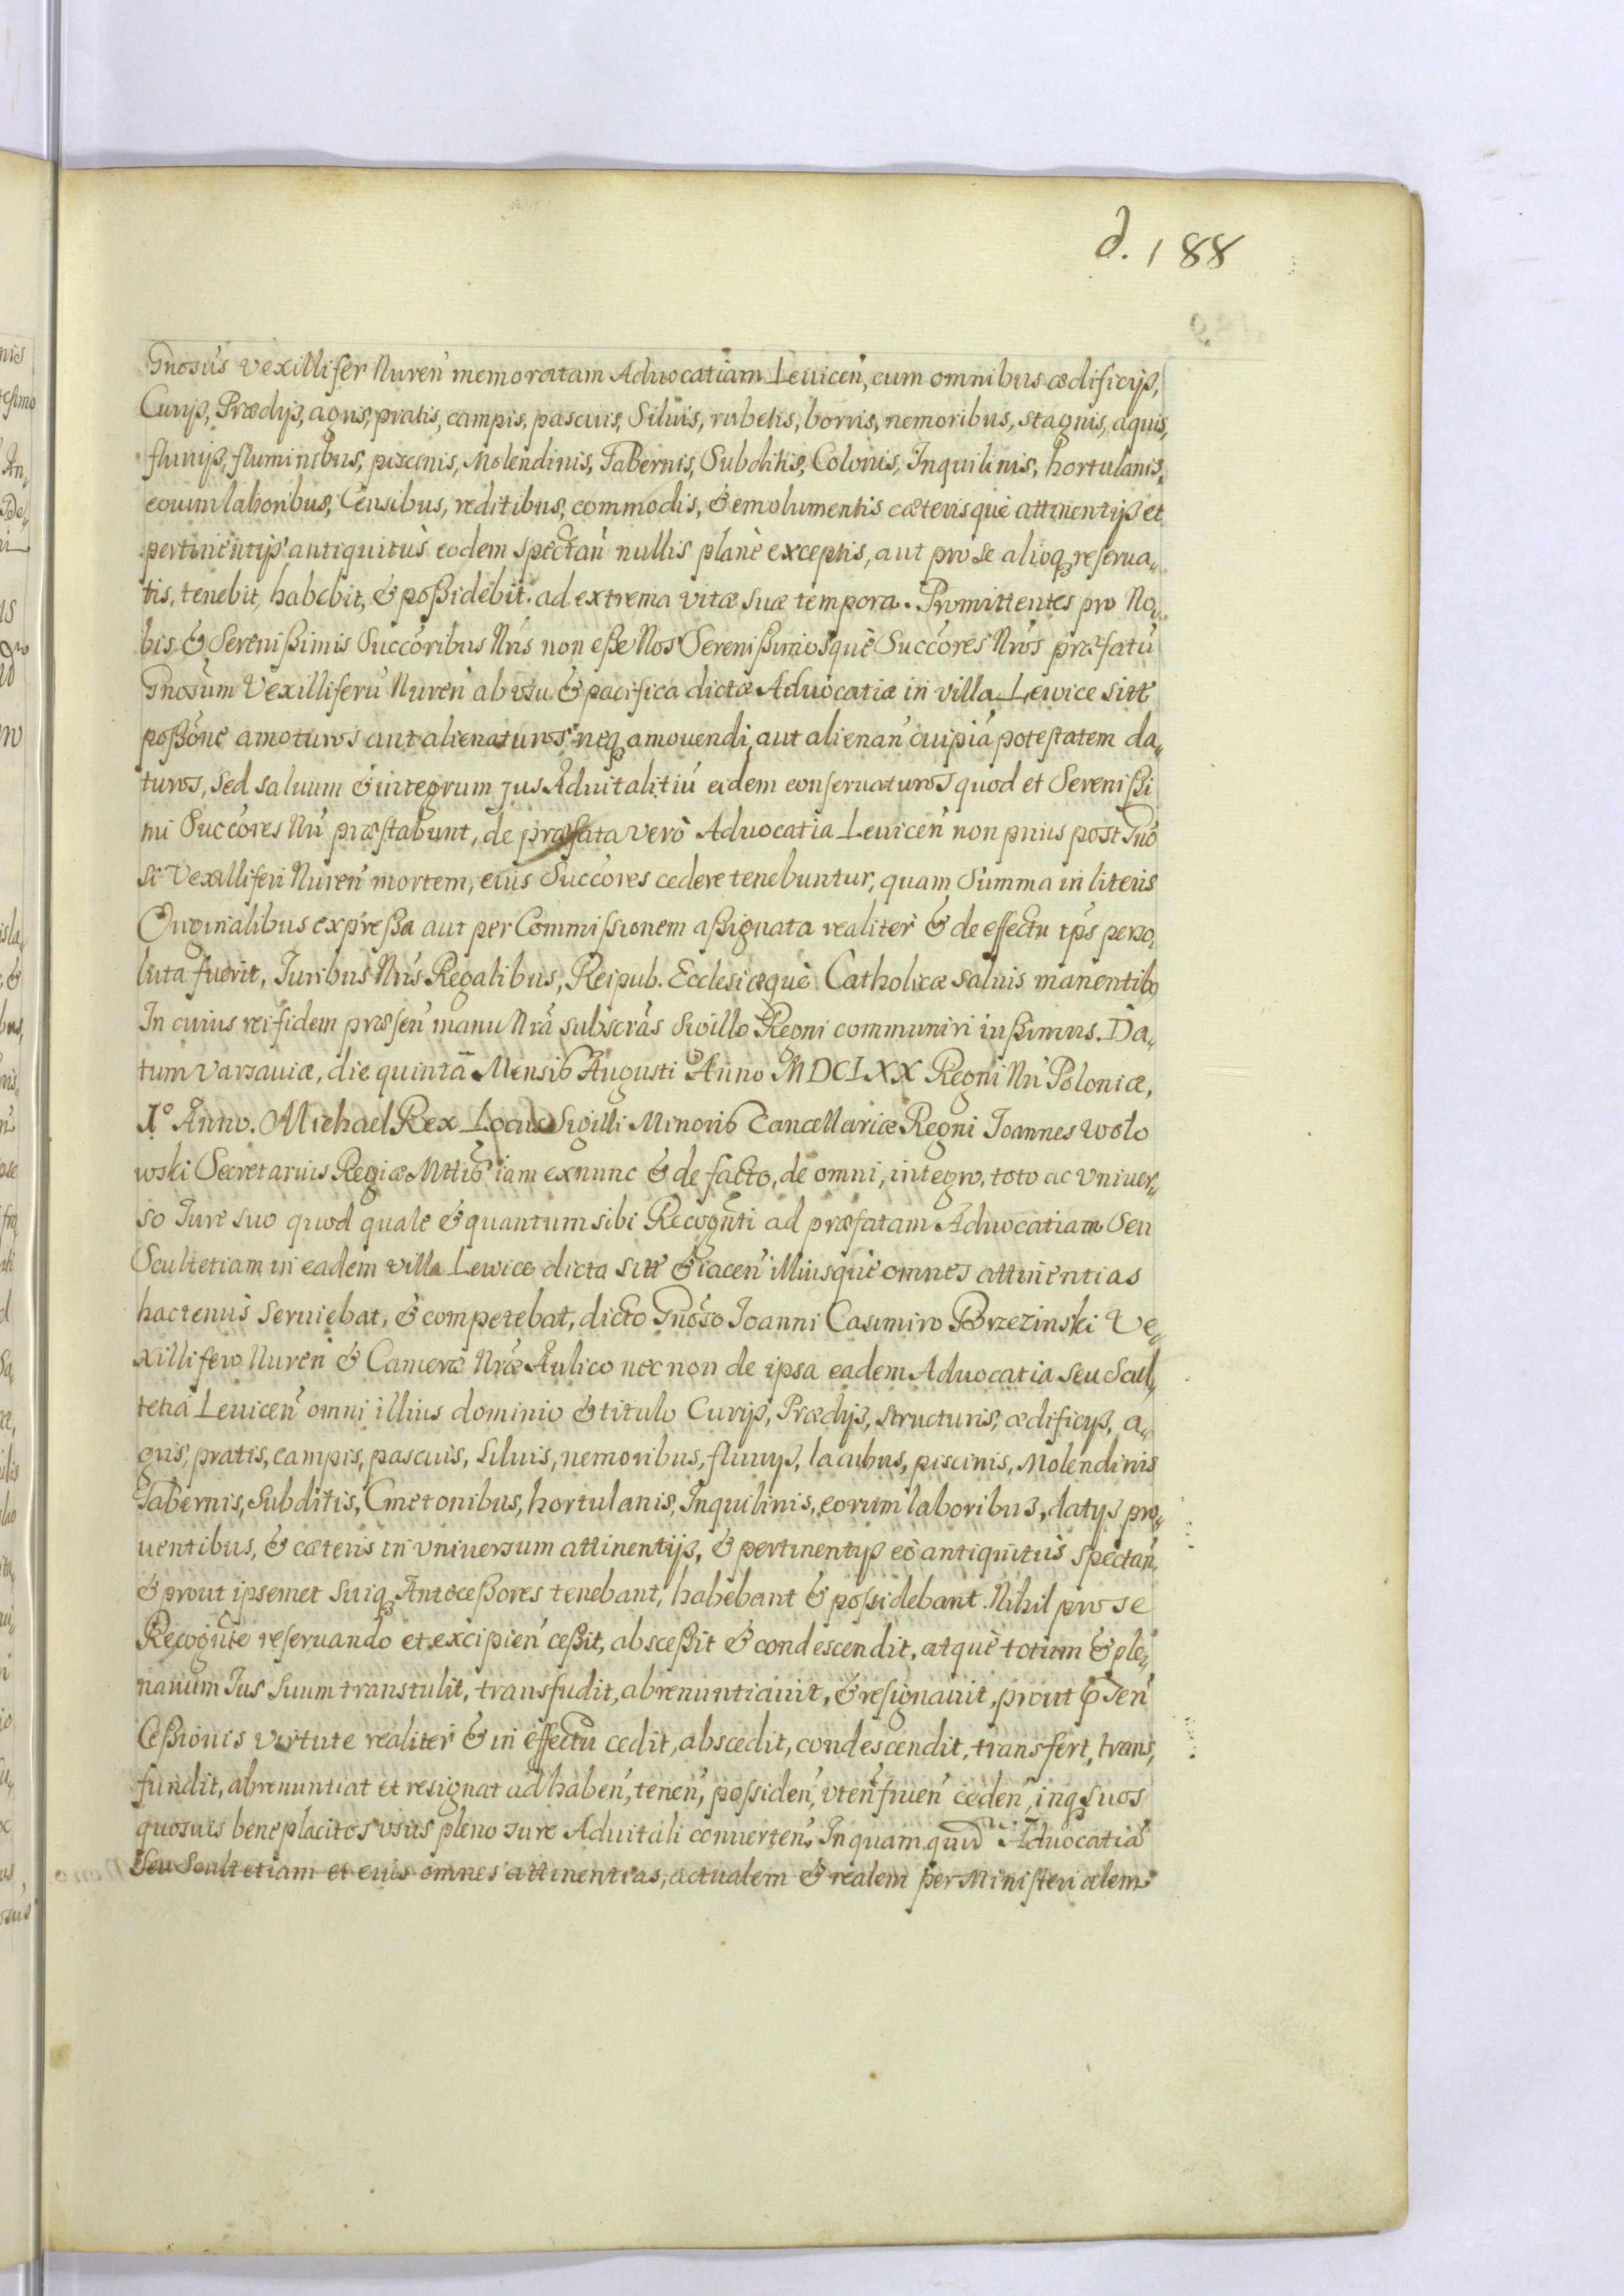 d. 188
Gnosus Vexillifer Nureń memoratam Aduocatiam Leuiceń, cum omnibus ædificijs,
Curijs, Prædijs, agris, pratis, campis, pascuis, Siluis, rubetis, borris, nemoribus, stagnis, aquis,
fluuijs, fluminibus, piscinis, Molendinis, Tabernis, Subditis, Colonis, Inquilinis, hortulanis,
eorum laboribus, Censibus, reditibus, commodis, & emolumentis cæterisque attinentijs et
pertinentijs antiquitùs eodem spectań nullis planè exceptis, aut pro se alioq; reserua„
tis, tenebit, habebit, & poßidebit ad extrema vitæ suæ tempora. Promittentes pro No„
bis & Sereniſsimis Succoribus Nris non eße Nos Sereniſsimosque Succores Nros præfatū
Gnosum Vexilliferū Nureń ab vsu & pacifica dictæ Aduocatiæ in villa Lewice sitt
poßone amoturos aut alienaturos neq; amouendi, aut alienań cuipiā potestatem da„
turos, sed saluum & integrum jus Aduitalitiū eidem conseruaturos quod et Sereniſsi
mi Succores Nri præstabunt, de præfata verò Aduocatia Leuiceń non prius post Gno
si Vexilliferi Nureń mortem, eius Succores cedere tenebuntur, quam Summa in literis
Originalibus expreßa aut per Commiſsionem aßignata realiter & de effectu ips perso„
luta fuerit, Juribus Nris Regalibus, Reipub. Ecclesiæque Catholicæ saluis manentib9
In cuius rei fidem præseń manu Nrā subscrās Sigillo Regni communiri iußimus. Da„
tum Varsauiæ, die quintā Mensis Augusti Anno MDCLXX Regni Nri Poloniæ,
Iº Anno. Michael Rex Locus Sigilli Minoris Cancellariæ Regni Joannes Wolo
wski Secretarius Regiæ Mttis iam exnunc & de facto, de omni, integro, toto ac vniuer„
so Jure suo quod quale & quantum sibi Recognti ad præfatam Aduocatiam Seu
Scultetiam in eadem villa Lewice dicta sitt & iaceń illiusque omnes attinentias
hactenus seruiebat, & competebat, dicto Gnoso Joanni Casimiro Brzezinski Ve„
xillifero Nureń & Cameræ Nræ Aulico nec non de ipsa eadem Aduocatia seu Scul„
tetiā Leuiceń omni illius dominio & titulo Curijs, Prædijs, structuris, ædificijs, a„
gris, pratis, campis, pascuis, Siluis, nemoribus, fluuijs, lacubus, piscinis, Molendinis
Tabernis, Subditis, Cmetonibus, hortulanis, Inquilinis, eorum laboribus, datijs pro„
uentibus, & cæteris in vniuersum attinentijs, & pertinentijs eò antiquitùs spectań,
& prout ipsemet suiq; Anteceßores tenebant, habebant & poſsidebant. Nihil pro se
Recognte reseruando et excipień ceßit, absceßit & condescendit, atque totum & ple„
narium Jus Suum transtulit, transfudit, abrenuntiauit, & resignauit, prout pseń
Ceßionis virtute realiter & in effectu cedit, abscedit, condescendit, transfert, trans„
fundit, abrenuntiat et resignat ad habeń, teneń, poſsideń, vteń frueń cedeń, inq; suos
quosuis beneplacitos vsus pleno jure Aduitali conuerteń. In quam quid Aduocatiā
Seu Scultetiam et eius omnes attinentias, actualem & realem per Ministerialem